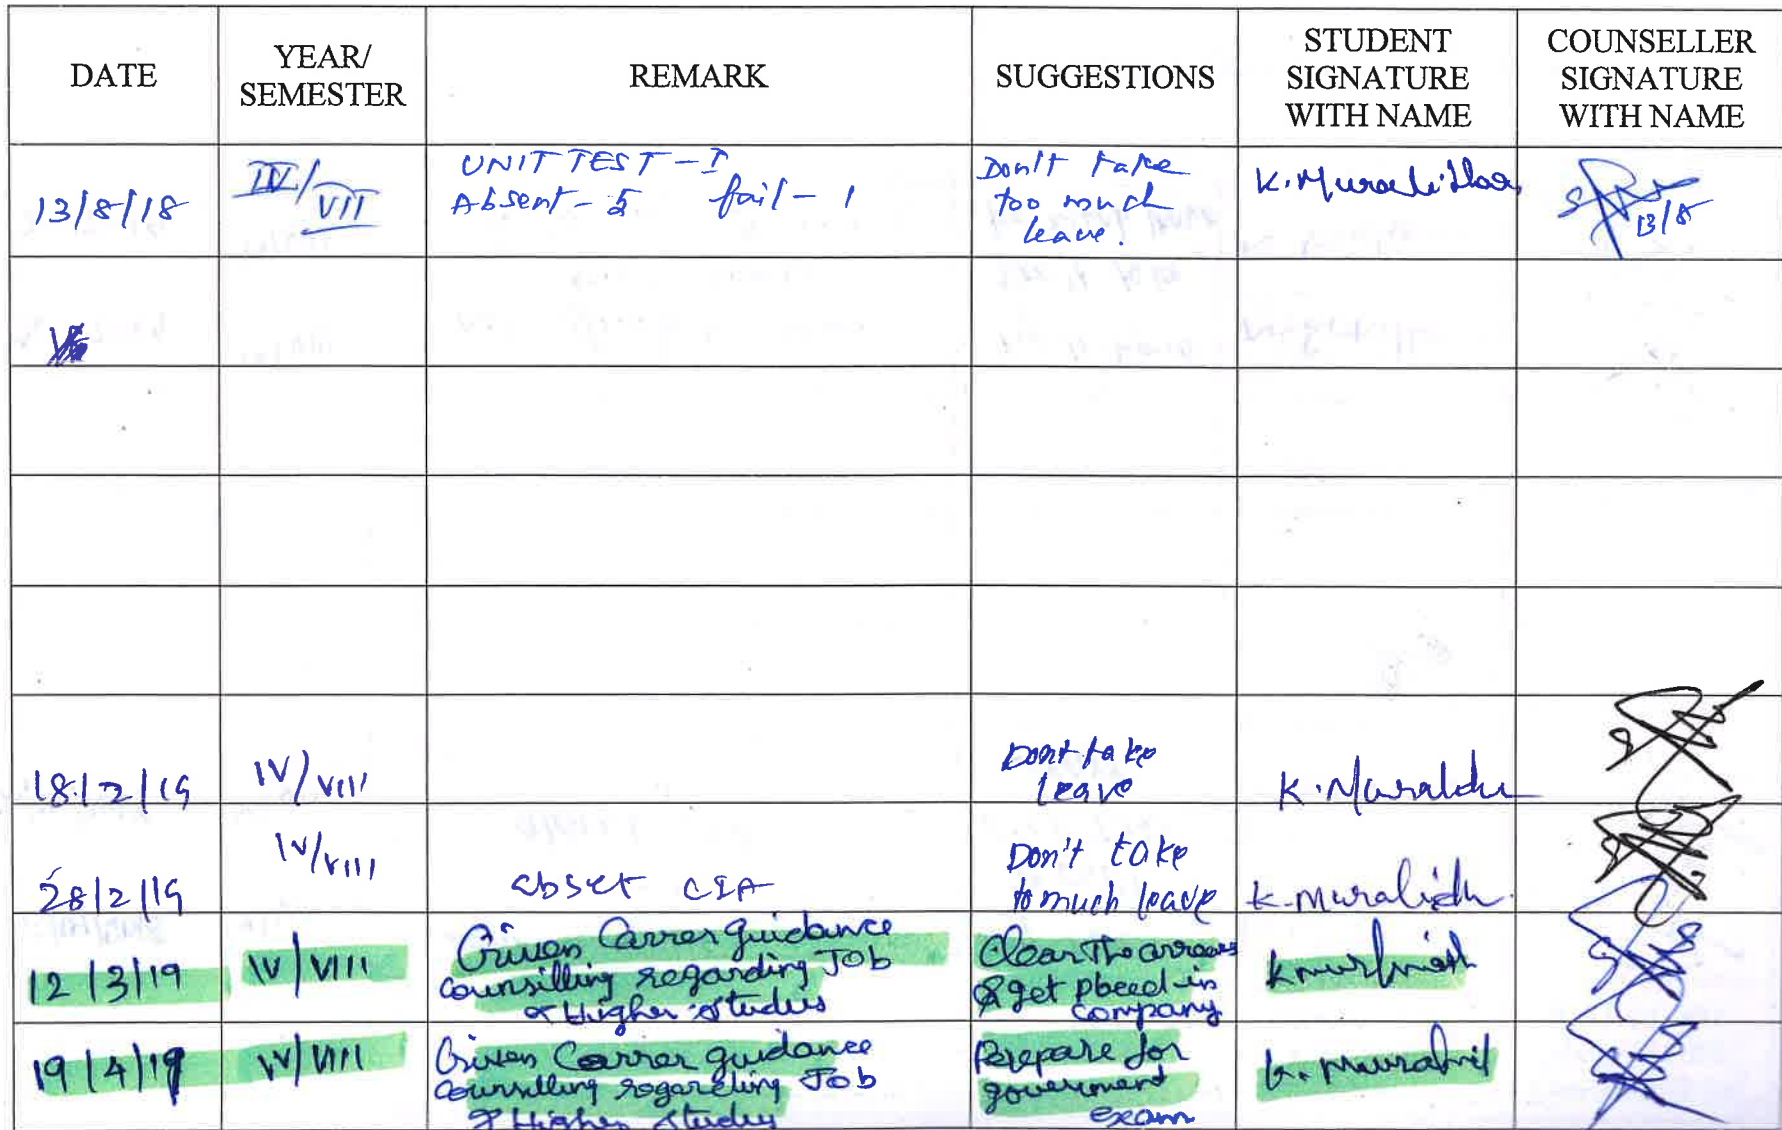 DATE
YEAR/
SEMESTER
REMARK
SUGGESTIONS
STUDENT
SIGNATURE
WITH NAME
COUNSELLER
SIGNATURE
WITH NAME
13/8/18
IV/
VII
UNIT TEST - I
Absent - 5 fail - 1
Don't take
too much
leave.
K. Muralidhar
13/8
18/2/19
IV/VIII
Dont take
leave
K. Muralidh
28/2/19
IV/VIII
abset CIA
Don't take
to much leave
K. Muralidh
12/3/19
IV/VIII
Given Carrer guidance
counsilling regarding Job
& Higher studies
Clear The arrears
& get placed in
company
19/4/19
IV/VIII
Given Carrer guidance
counsilling regarding Job
& Higher studies
Prepare for
government
exam